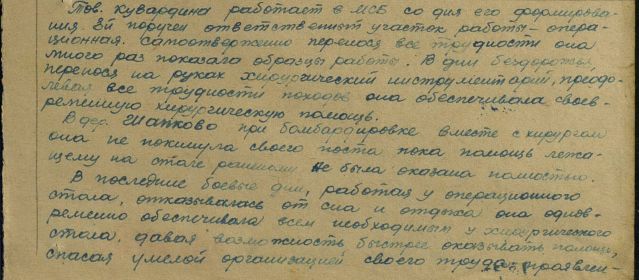 Тов. Кувардина работает в МСБ со дня его формирова-
ния. Ей поручен ответственный участок работы – опера-
ционная. Самоотверженно перенося все трудности она
много раз показала образцы работы. В дни бездорожья
перенося на руках хирургический инструментарий, преодо-
левая все трудности походов она обеспечивала свое-
ременную хирургическую помощь.
В дер. Шапково при бомбардировке вместе с хирургом
она не покинула своего поста пока помощь лежа-
щему на столе раненому не была оказана полностью.
В последние боевые дни, работая у операционного
стола, отказывалась от сна и отдыха она однов-
ременно обеспечивала всем необходимым у хирургического
стола, давая возможность быстрее оказывать помощь,
спасая умелой организацией своего труда, проявлен-